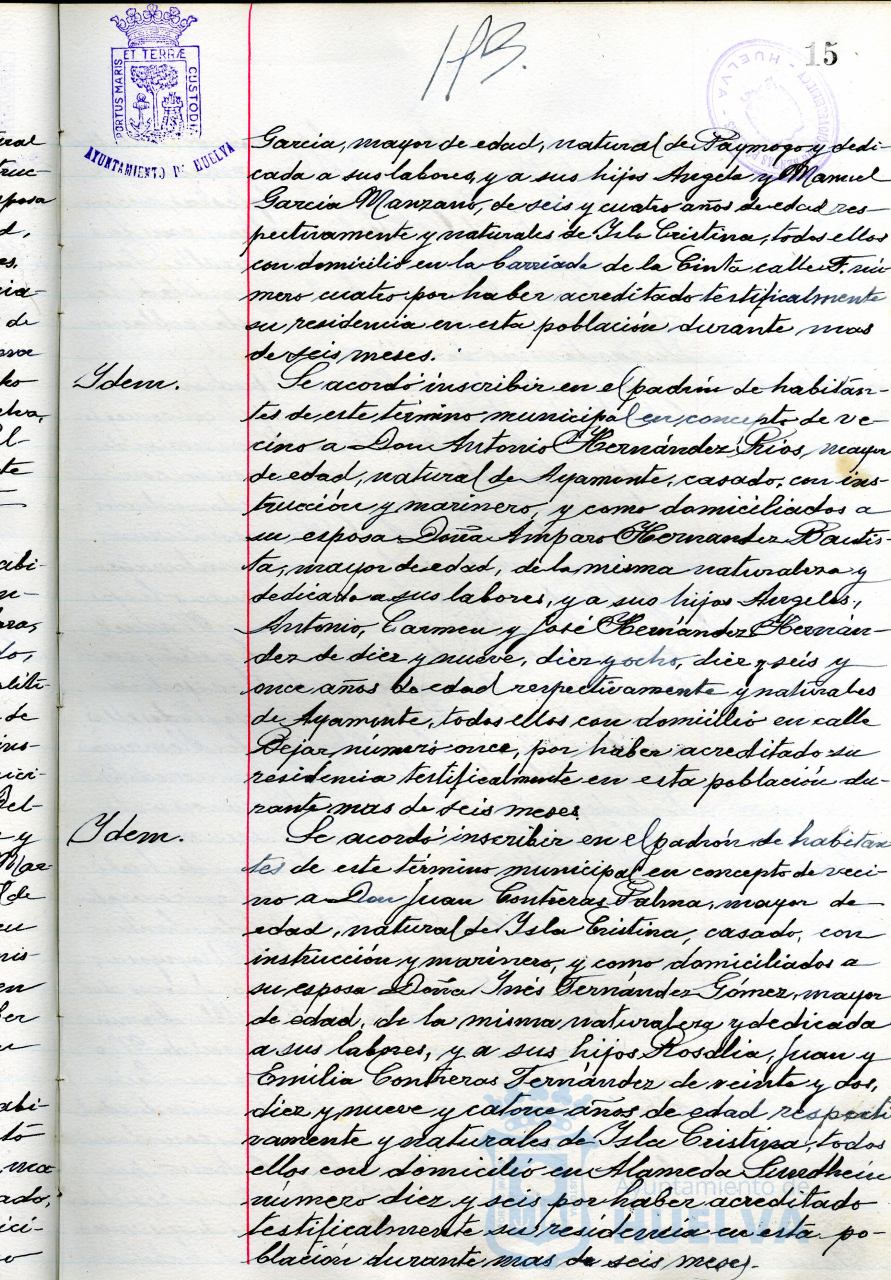 113.
15
PORTUS MARIS ET TERRÆ CUSTODIA
AYUNTAMIENTO DE HUELVA
HUELVA
Garcia, mayor de edad, natural de Paymogo y dedi-
cada a sus labores, y a sus hijos Angela y Manuel
García Manzano, de seis y cuatro años de edad res-
pectivamente y naturales de Isla Cristina, todos ellos
con domicilio en la barriada de la Cinta calle F. nú-
mero cuatro por haber acreditado testificalmente
su residencia en esta población durante mas
de seis meses.
Ydem.
Se acordó inscribir en el padrón de habitan-
tes de este término municipal en concepto de ve-
cino a Don Antonio Hernández Rios, mayor
de edad, natural de Ayamonte, casado, con ins-
trucción y marinero, y como domiciliados a
su esposa Doña Amparo Hernandez Bautis-
ta, mayor de edad, de la misma naturaleza y
dedicada a sus labores, y a sus hijos Angeles,
Antonio, Carmen y José Hernández Hernán-
dez de diez y nueve, diez y ocho, diez y seis y
once años de edad respectivamente y naturales
de Ayamonte, todos ellos con domicilio en calle
Bejar, número once, por haber acreditado su
residencia testificalmente en esta población du-
rante mas de seis meses
Ydem.
Se acordó inscribir en el padrón de habitan
tes de este término municipal en concepto de veci-
no a Don Juan Contreras Palma, mayor de
edad, natural de Isla Cristina, casado, con
instrucción y marinero, y como domiciliados a
su esposa Doña Inés Fernández Gómez, mayor
de edad, de la misma naturaleza y dedicada
a sus labores, y a sus hijos Rosalia, Juan y
Emilia Contreras Fernández de veinte y dos,
diez y nueve y catorce años de edad respecti
vamente y naturales de Isla Cristina, todos
ellos con domicilio en Alameda Sundhein
número diez y seis por haber acreditado
testificalmente su residencia en esta po-
blación durante mas de seis meses.
Ayuntamiento de
HUELVA